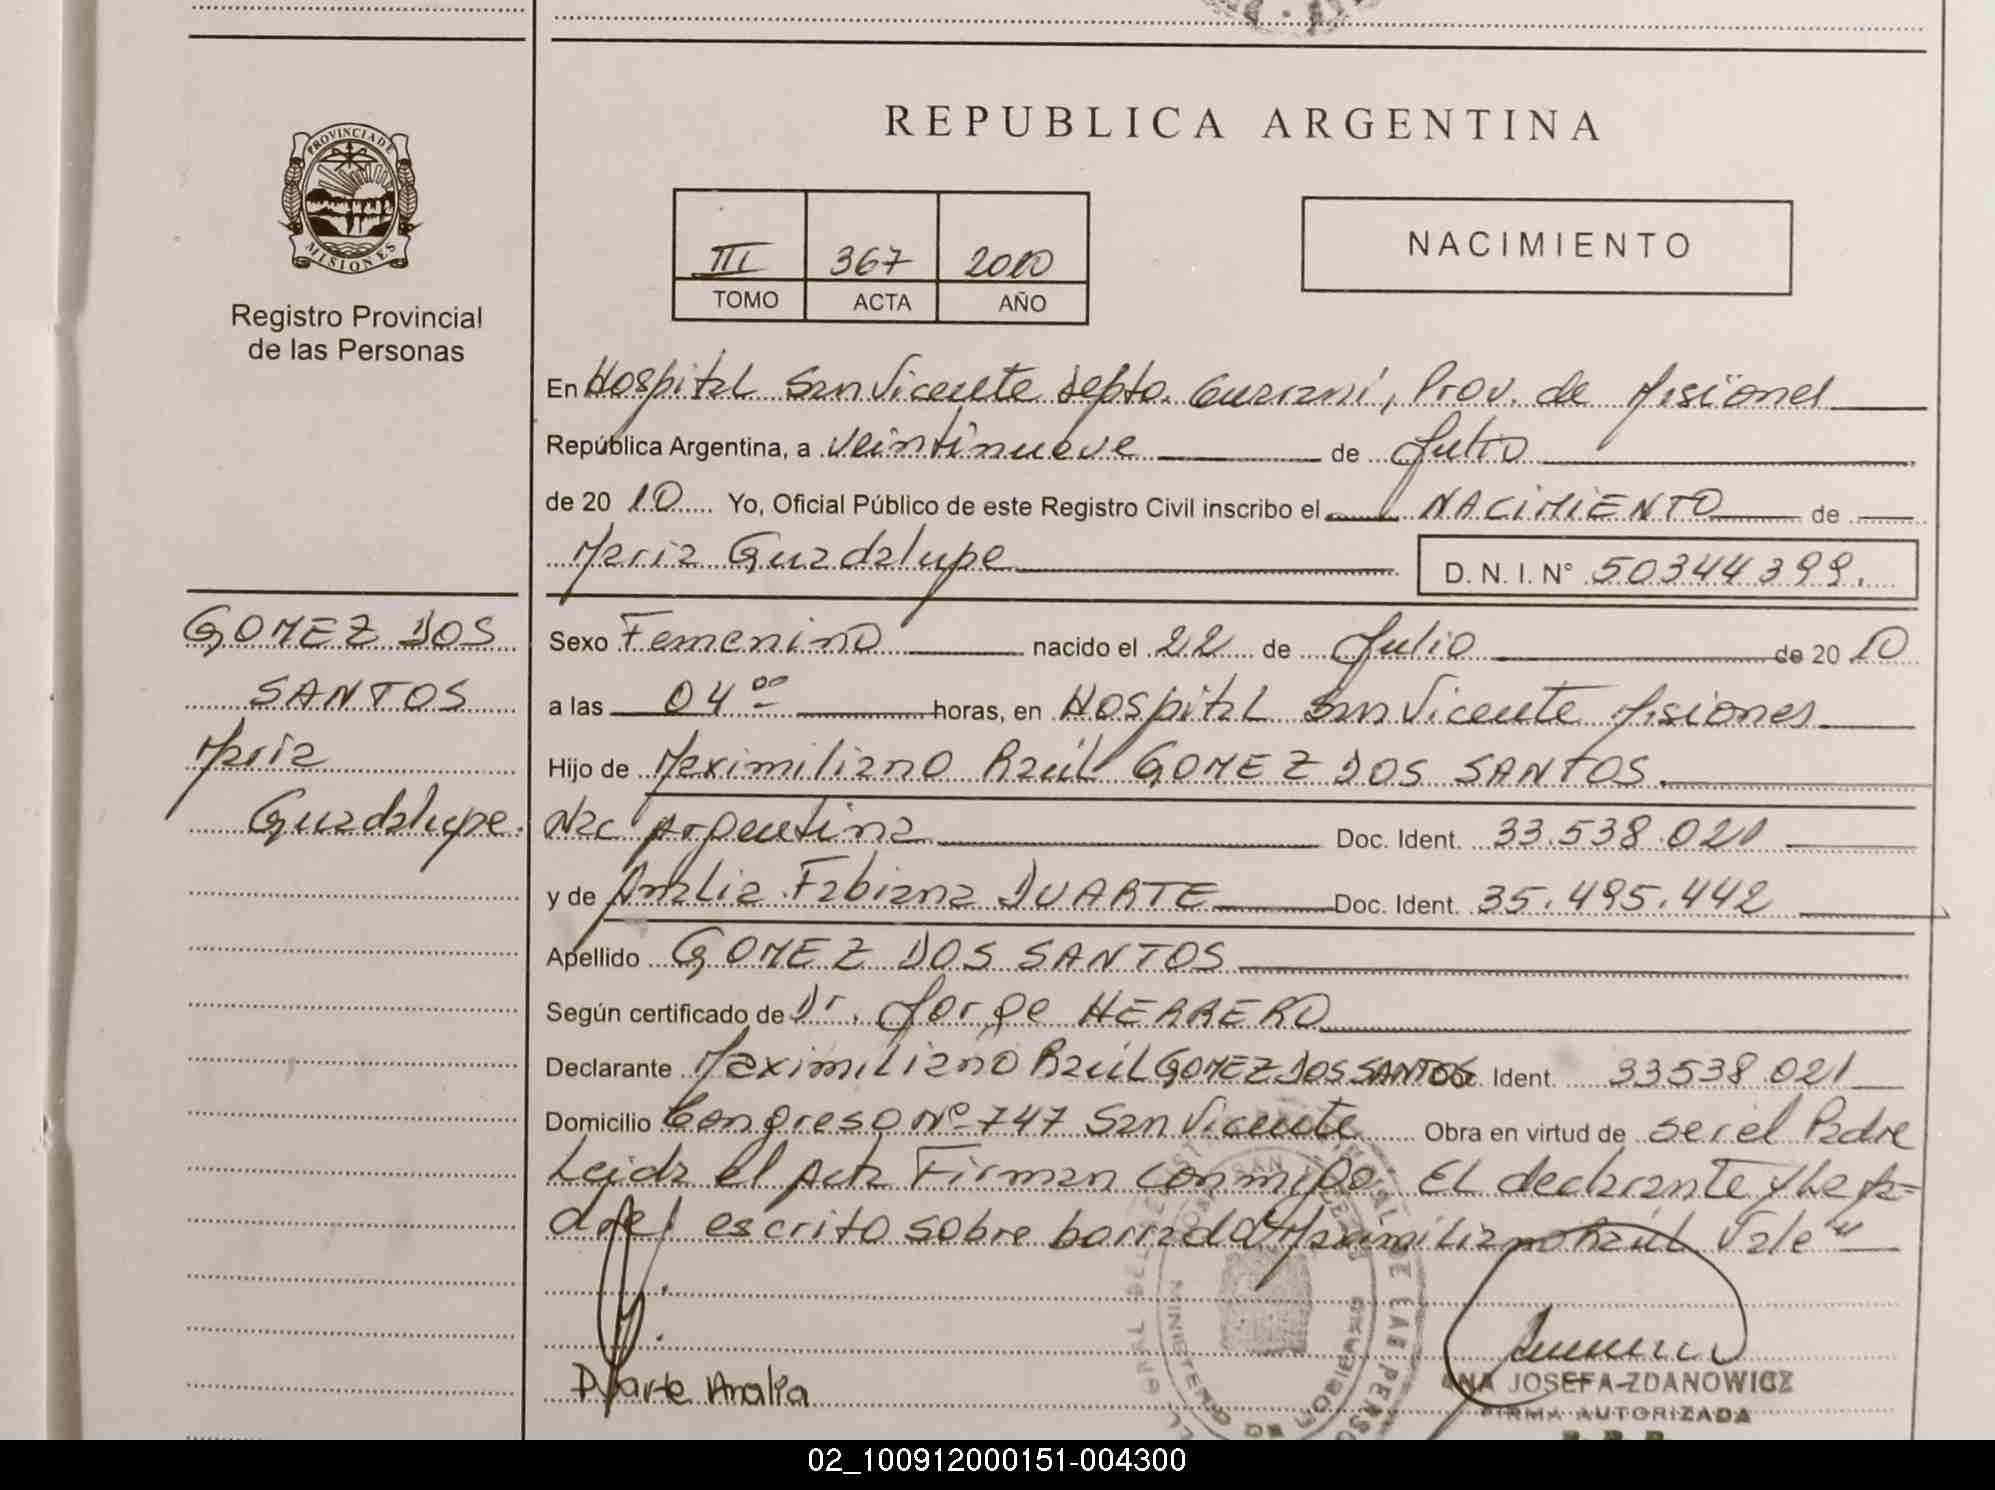 REPUBLICA ARGENTINA
PROVINCIA DE
MISIONES
Registro Provincial
de las Personas
III 367 2010
TOMO ACTA AÑO
NACIMIENTO
En Hospital San Vicente Depto. Guaraní, Prov. de Misiones
República Argentina, a veintinueve de Julio
de 20 10 Yo, Oficial Público de este Registro Civil inscribo el NACIMIENTO de
Maria Guadalupe D. N. I. N° 50344399.
GOMEZ DOS
SANTOS
Maria
Guadalupe.
Sexo Femenino nacido el 22 de Julio de 20 10
a las 04 00 horas, en Hospital San Vicente Misiones
Hijo de Maximiliano Raúl GOMEZ DOS SANTOS.
Nac Argentina Doc. Ident. 33.538.021
y de Analia Fabiana DUARTE Doc. Ident. 35.495.442
Apellido GOMEZ DOS SANTOS
Según certificado de Dr. Jorge HERRERO
Declarante Maximiliano Raúl GOMEZ DOS SANTOS Doc. Ident. 33538.021
Domicilio Congreso Nº 747 San Vicente Obra en virtud de ser el Padre
Leida el Acta Firman conmigo El declarante y la
escrito sobre borrado "Maximiliano Raúl Vale"
Duarte Analia
ANA JOSEFA ZDANOWICZ
FIRMA AUTORIZADA
MINISTERIO DE GOBIERNO
02_100912000151-004300